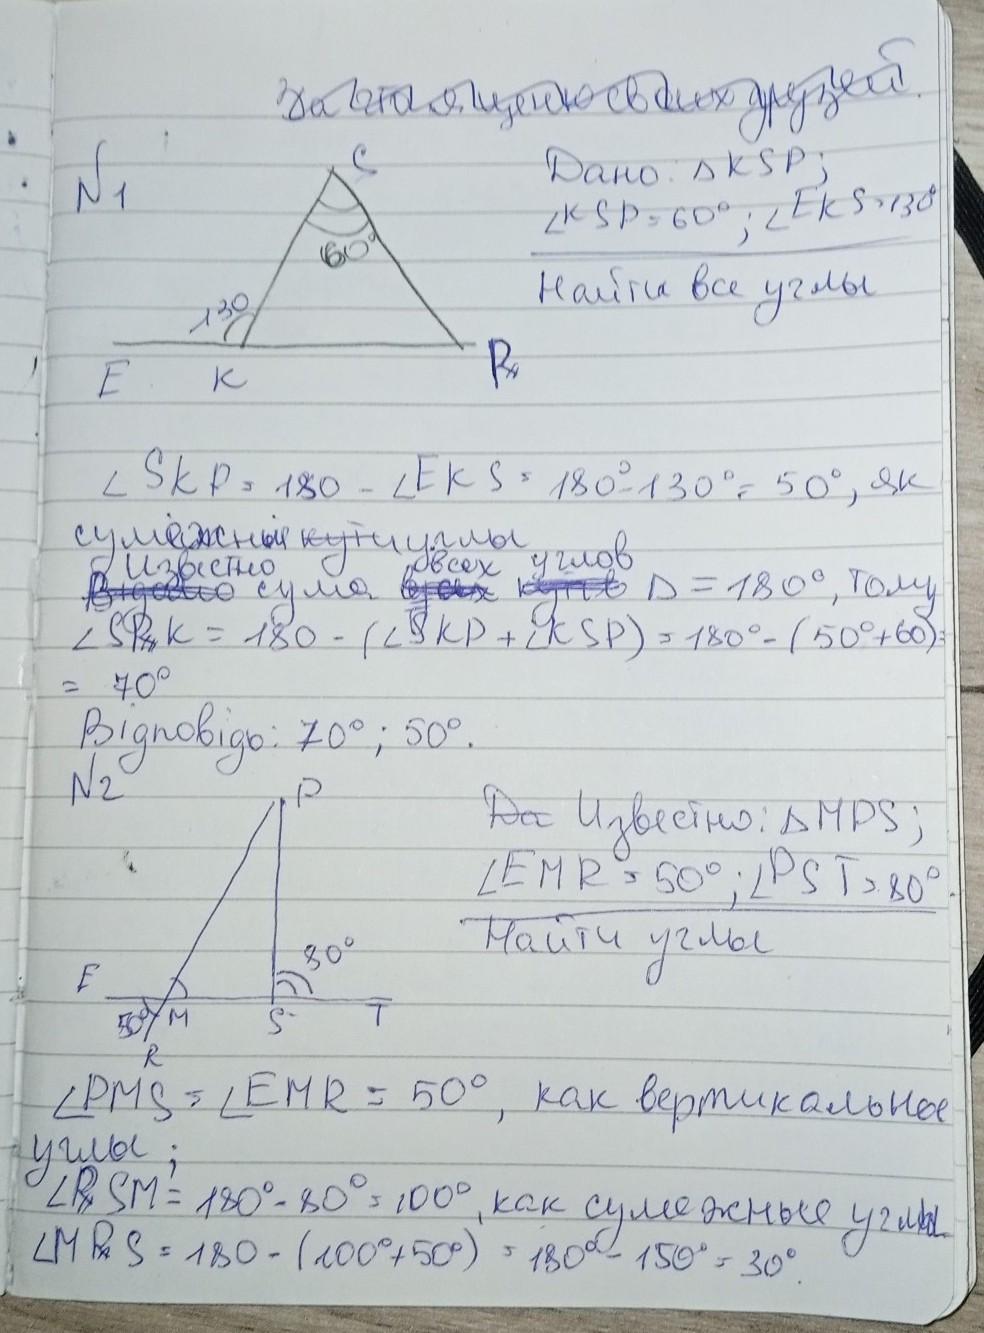 За что я ценю своих друзей.
N1
S
60°
130
E K P
Дано: ΔKSP;
∠KSP=60°; ∠EKS=130°
Найти все углы
∠SKP=180-∠EKS=180°-130°=50°, як
сумежные кути углы
Известно всех углов
Відомо сума всех кутів Δ=180°, тому
∠SPK=180-(∠SKP+∠KSP)=180°-(50°+60)=
= 70°
Відповідь: 70°; 50°.
N2
P
80°
E
50° M S T
R
Да Известно: ΔMPS;
∠EMR=50°; ∠PST=80°.
Найти углы
∠PMS=∠EMR=50°, как вертикальные
углы;
∠PSM=180°-80°=100°, как сумежные углы
∠MPS=180-(100°+50°)=180°-150°=30°.